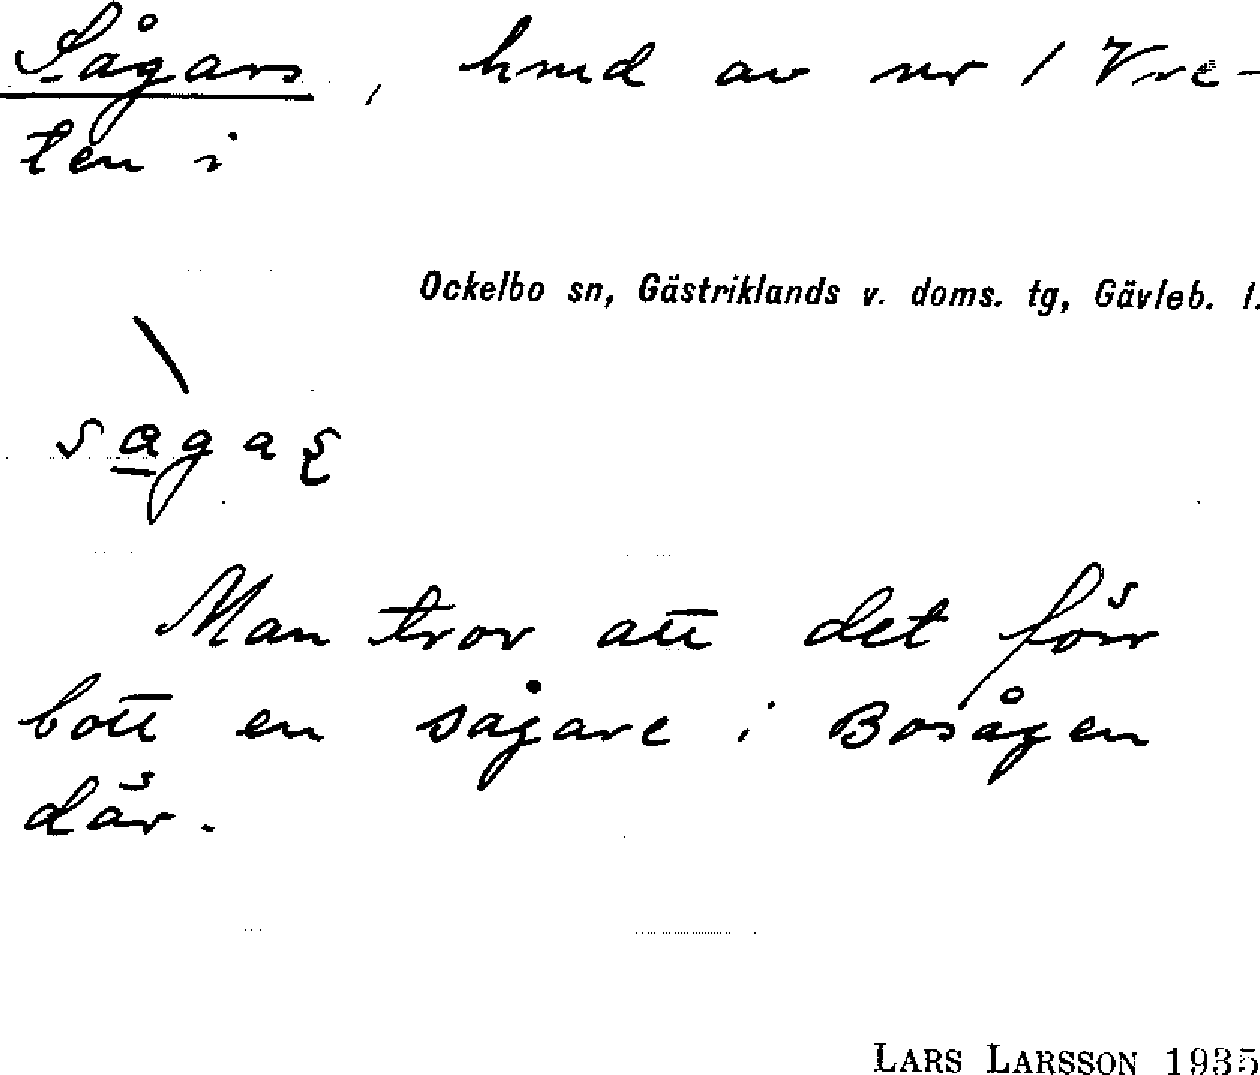 Sågars, hmd av nr 1 Vre-
ten i
Ockelbo sn, Gästriklands v. doms. tg, Gävleb. l.
Man tror att det förr
bott en sågare i Bosågen
där.
LARS LARSSON 1935